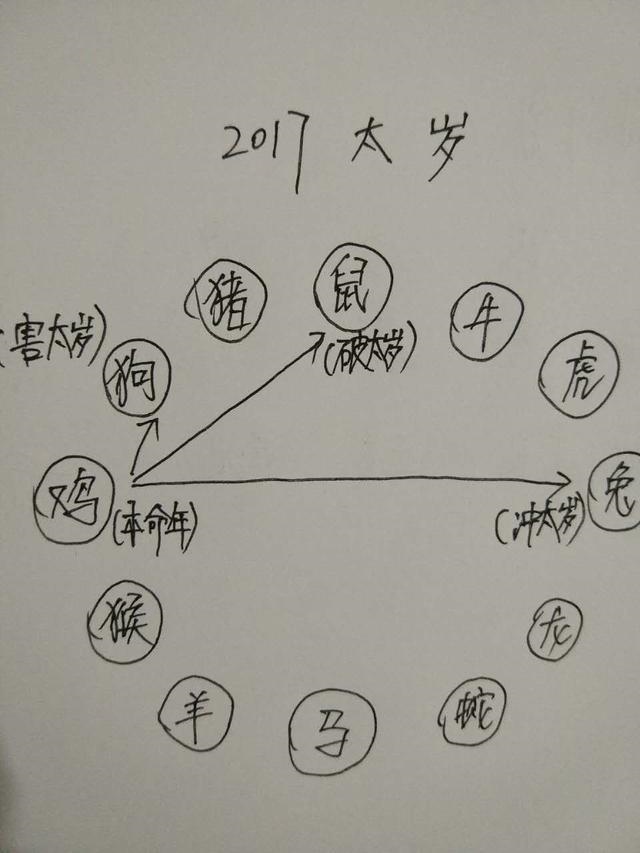 2017 太岁
鼠
猪
牛
(害太岁)
(破太岁)
狗
虎
鸡
兔
(本命年)
(冲太岁)
猴
龙
羊
马
蛇